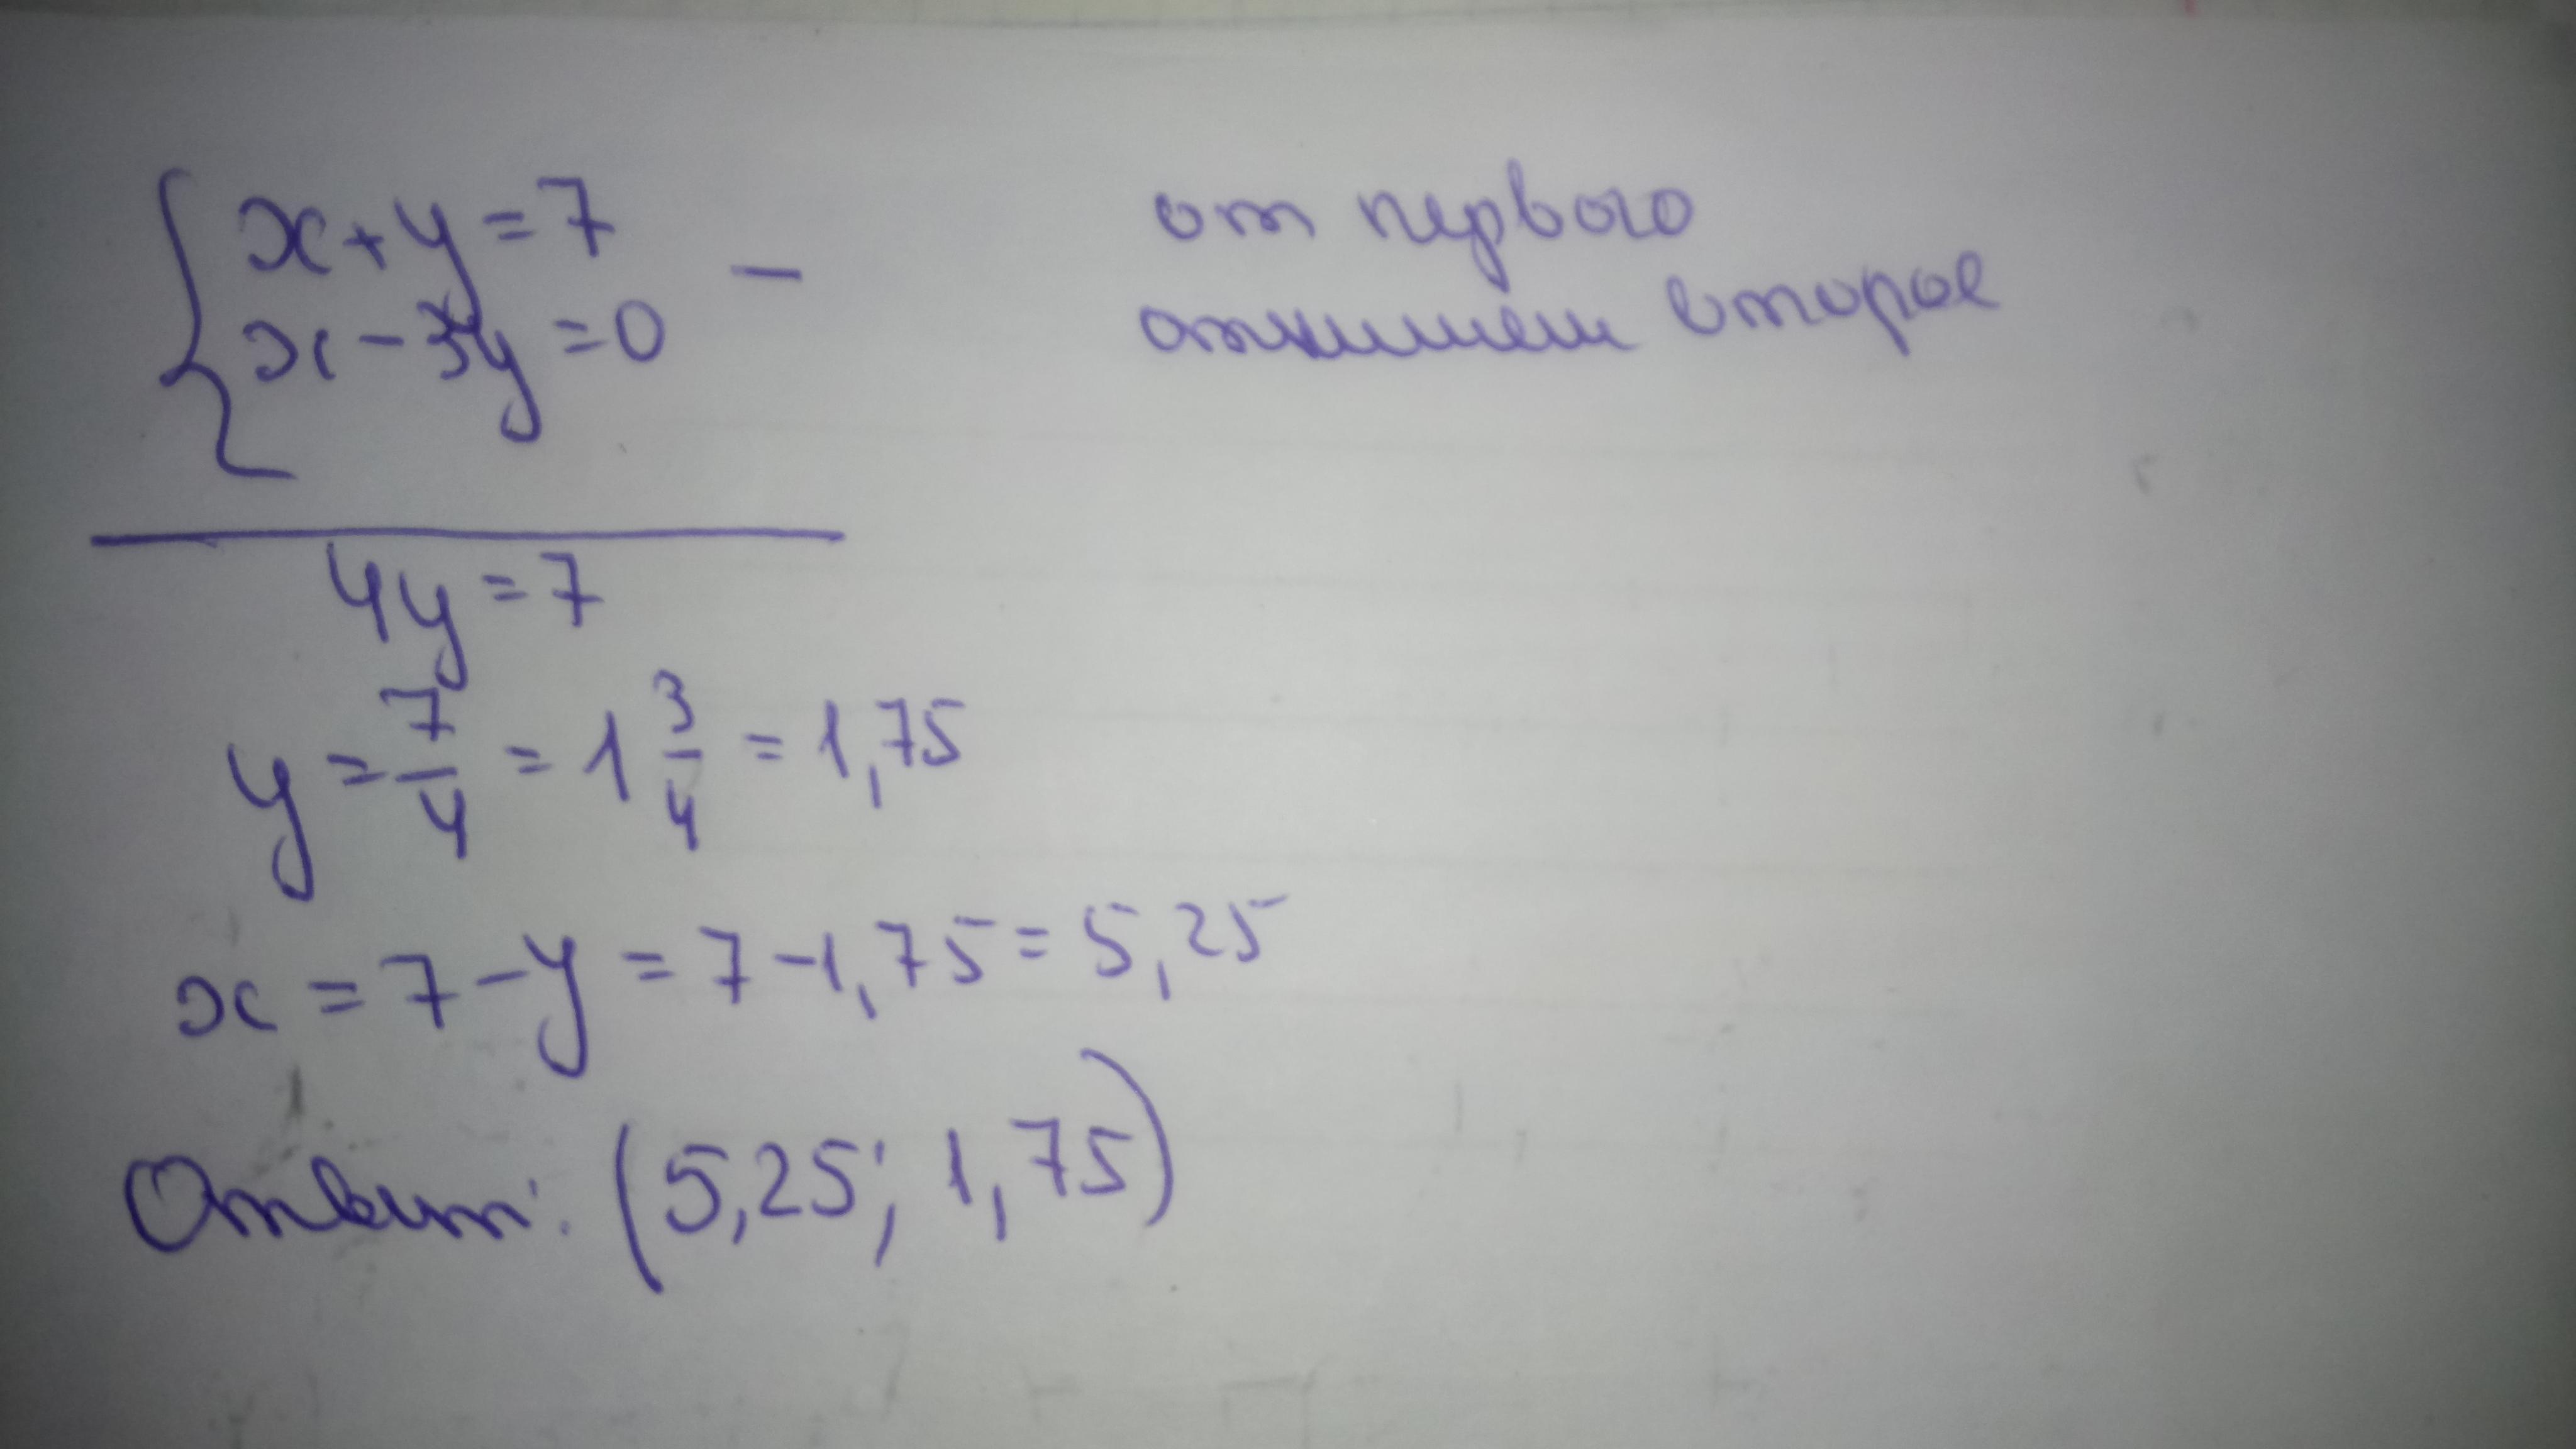 x+y=7
x-3y=0 -
от первого
отнимем второе
4y=7
y=7/4=1 3/4=1,75
x=7-y=7-1,75=5,25
Ответ: (5,25; 1,75)